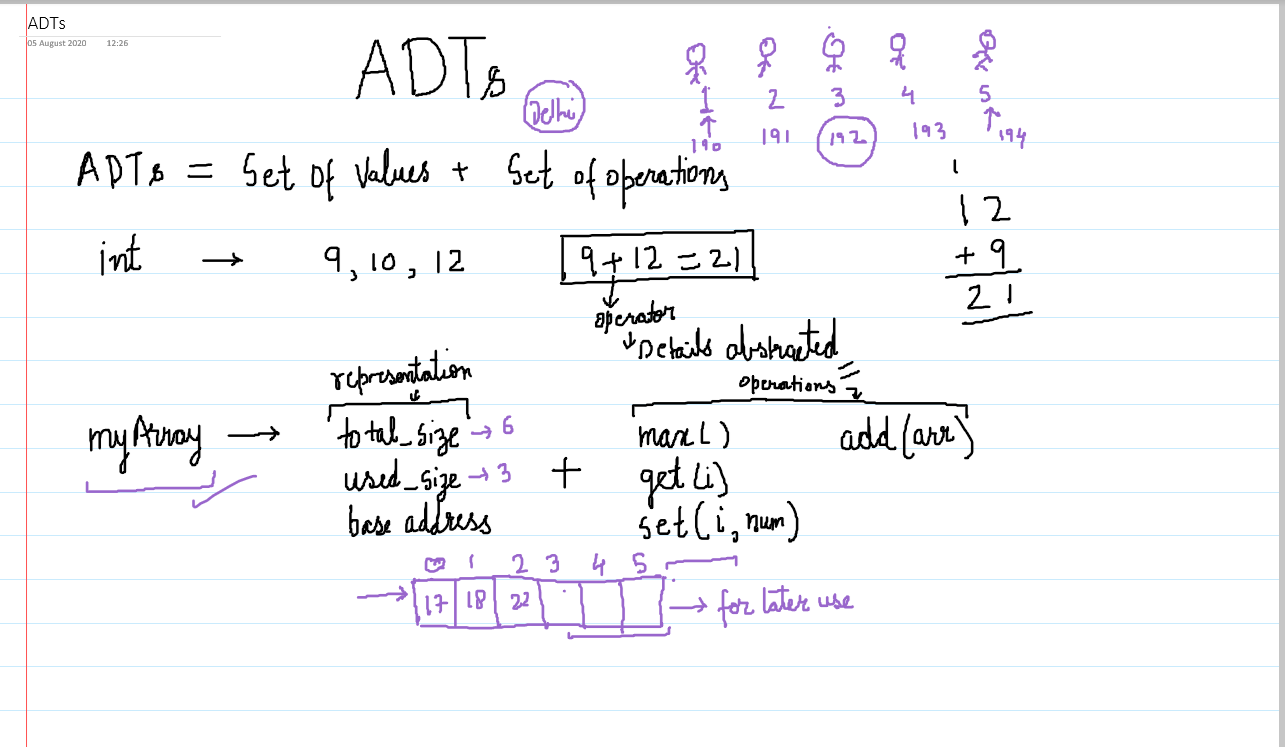 ADTs
05 August 2020 12:26
ADTs
Delhi
1 2 3 4 5
190 191 192 193 194
ADTs = Set of Values + Set of operations
int → 9, 10, 12
9 + 12 = 21
1
12
+ 9
21
operator
↓ Details abstracted
representation
operations
myArray → total_size → 6
used_size → 3
base address
+
max()
get(i)
set(i, num)
add(arr)
0 1 2 3 4 5
→ 17 18 22 → for later use